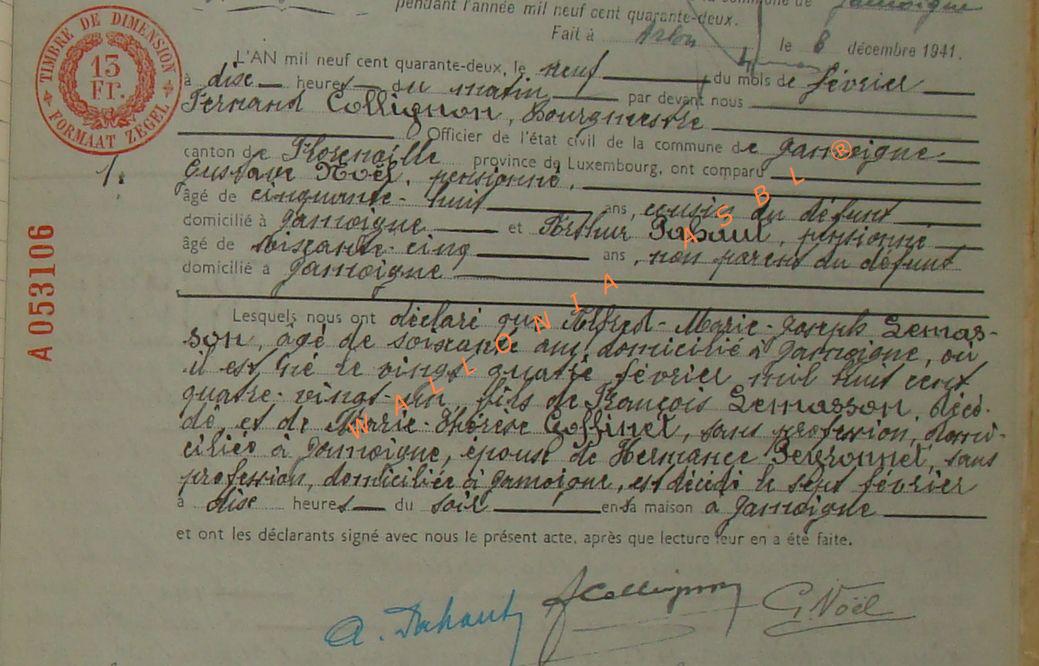 pendant l'année mil neuf cent quarante-deux.
Fait à Arlon le 8 décembre 1941.
TIMBRE DE DIMENSION
13
Fr.
FORMAAT ZEGEL
A053106
1.
L'AN mil neuf cent quarante-deux, le neuf du mois de février
à dix heures du matin par devant nous
Fernand Collignon, Bourgmestre
Officier de l'état civil de la commune de Jamoigne
canton de Florenville province de Luxembourg, ont comparu
Gustave Noël, pensionné,
âgé de cinquante-huit ans, cousin du défunt
domicilié à Jamoigne et Arthur Dahaut, pensionné
âgé de soixante-cinq ans, non parent du défunt
domicilié à Jamoigne
Lesquels nous ont déclaré que Alfred-Marie-Joseph Lemas-
son, âgé de soixante ans, domicilié à Jamoigne, où
il est né le vingt quatre février mil huit cent
quatre-vingt-un, fils de François Lemasson, décé-
dé, et de Marie-Thérèse Coffinet, sans profession, domi-
ciliée à Jamoigne, époux de Hermance Peyronnet, sans
profession, domiciliée à Jamoigne, est décédé le sept février
à dix heures du soir en sa maison à Jamoigne
et ont les déclarants signé avec nous le présent acte, après que lecture leur en a été faite.
A. Dahaut FCollignon G. Noël
WALLONIA ASBL ®